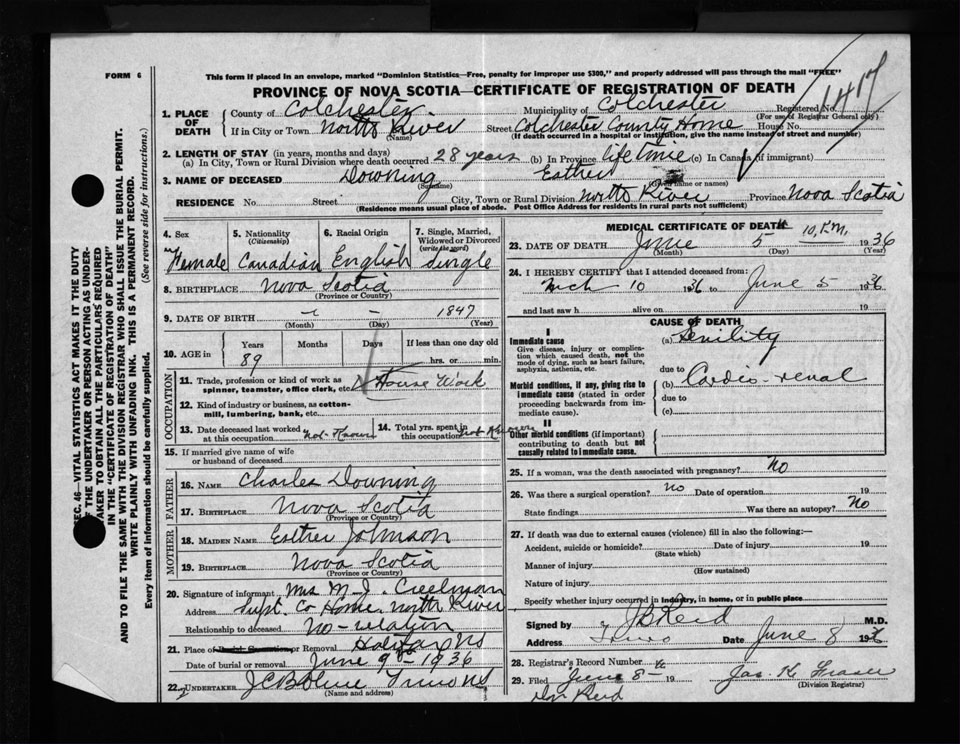 FORM 6
This form if placed in an envelope, marked "Dominion Statistics—Free, penalty for improper use $300," and properly addressed will pass through the mail "FREE"
PROVINCE OF NOVA SCOTIA—CERTIFICATE OF REGISTRATION OF DEATH
1417
1. PLACE OF DEATH
County of Colchester Municipality of Colchester Registered No.
(For use of Registrar General only)
If in City or Town North River Street Colchester County Home House No.
(Name) (If death occurred in a hospital or institution, give the name instead of street and number)
2. LENGTH OF STAY (in years, months and days)
(a) In City, Town or Rural Division where death occurred 28 years (b) In Province life time (c) In Canada (if immigrant)
3. NAME OF DECEASED Downing Esther
(Surname) (Given name or names)
RESIDENCE No. Street City, Town or Rural Division North River Province Nova Scotia
(Residence means usual place of abode. Post Office Address for residents in rural parts not sufficient)
4. Sex 5. Nationality (Citizenship) 6. Racial Origin 7. Single, Married, Widowed or Divorced (write the word)
Female Canadian English Single
8. BIRTHPLACE Nova Scotia
(Province or Country)
9. DATE OF BIRTH - - 1847
(Month) (Day) (Year)
10. AGE in Years Months Days If less than one day old
89 hrs. or min.
OCCUPATION
11. Trade, profession or kind of work as spinner, teamster, office clerk, etc. House Work
12. Kind of industry or business, as cotton-mill, lumbering, bank, etc.
13. Date deceased last worked at this occupation Not-Known
14. Total yrs. spent in this occupation Not Known
15. If married give name of wife or husband of deceased
FATHER
16. NAME Charles Downing
17. BIRTHPLACE Nova Scotia
(Province or Country)
MOTHER
18. MAIDEN NAME Esther Johnson
19. BIRTHPLACE Nova Scotia
(Province or Country)
20. Signature of informant Mrs M-J. Creelman
Address Supt. Co Home. North River
Relationship to deceased No-relation
21. Place of Burial Cremation or Removal Halifax NS
Date of burial or removal June 9th-1936
22. UNDERTAKER Truro NS
(Name and address)
MEDICAL CERTIFICATE OF DEATH
23. DATE OF DEATH June 5th 10 P.M. 1936
(Month) (Day) (Year)
24. I HEREBY CERTIFY that I attended deceased from:
Mch 10 1936 to June 5 1936
and last saw h alive on 19
CAUSE OF DEATH
I
Immediate cause
Give disease, injury or complication which caused death, not the mode of dying, such as heart failure, asphyxia, asthenia, etc.
(a) Senility
due to
Morbid conditions, if any, giving rise to immediate cause (stated in order proceeding backwards from immediate cause).
(b) Cardio-renal
due to
(c)
II
Other morbid conditions (if important) contributing to death but not causally related to immediate cause.
25. If a woman, was the death associated with pregnancy? No
26. Was there a surgical operation? No Date of operation 19
State findings Was there an autopsy? No
27. If death was due to external causes (violence) fill in also the following:—
Accident, suicide or homicide? Date of injury 19
(State which)
Manner of injury
(How sustained)
Nature of injury
Specify whether injury occurred in industry, in home, or in public place
Signed by J B Reid M.D.
Address Truro Date June 8 1936
28. Registrar's Record Number
29. Filed June 8- 19 Jas. K. Fraser
(Division Registrar)
Dr Reid
SEC. 46—VITAL STATISTICS ACT MAKES IT THE DUTY
OF THE UNDERTAKER OR PERSON ACTING AS UNDERTAKER TO OBTAIN ALL THE PARTICULARS REQUIRED
IN THE "CERTIFICATE OF REGISTRATION OF DEATH"
AND TO FILE THE SAME WITH THE DIVISION REGISTRAR WHO SHALL ISSUE THE BURIAL PERMIT.
WRITE PLAINLY WITH UNFADING INK. THIS IS A PERMANENT RECORD.
Every item of information should be carefully supplied. (See reverse side for instructions.)